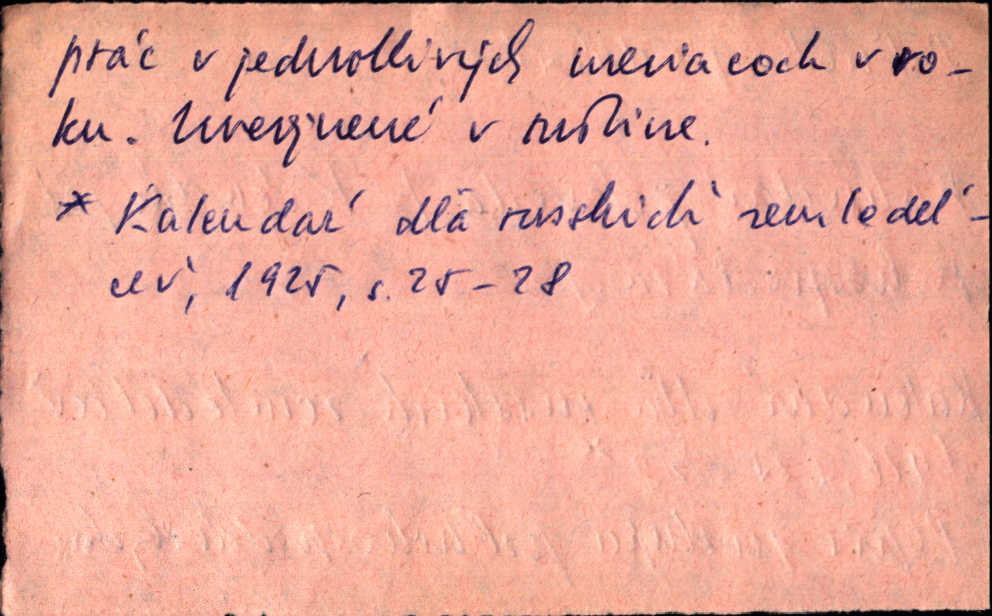 prác v jednotlivých mesiacoch v ro-
ku. Uverejnené v rusštine.
* Kalendar' dlä russkich zemledel'-
cev, 1925, s. 25-28